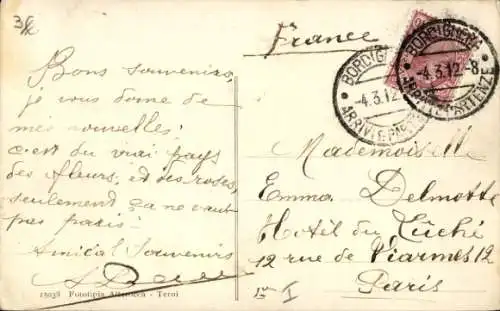 3/2
France
BORDIGHERA
-4.3.12
ARRIVI E PARTENZE
BORDIGHERA
-4.3.12-8
ARRIVI E PARTENZE
Bons souvenirs,
je vous donne de
mes nouvelles
c'est du vrai pays
des fleurs, et des roses,
seulement ça ne vaut
pas paris
Amical Souvenirs
Mademoiselle
Emma Delmotte
Hotel du Luché
12 rue de Viarmes 12
Paris
15038 Fototipia Alterocca - Terni